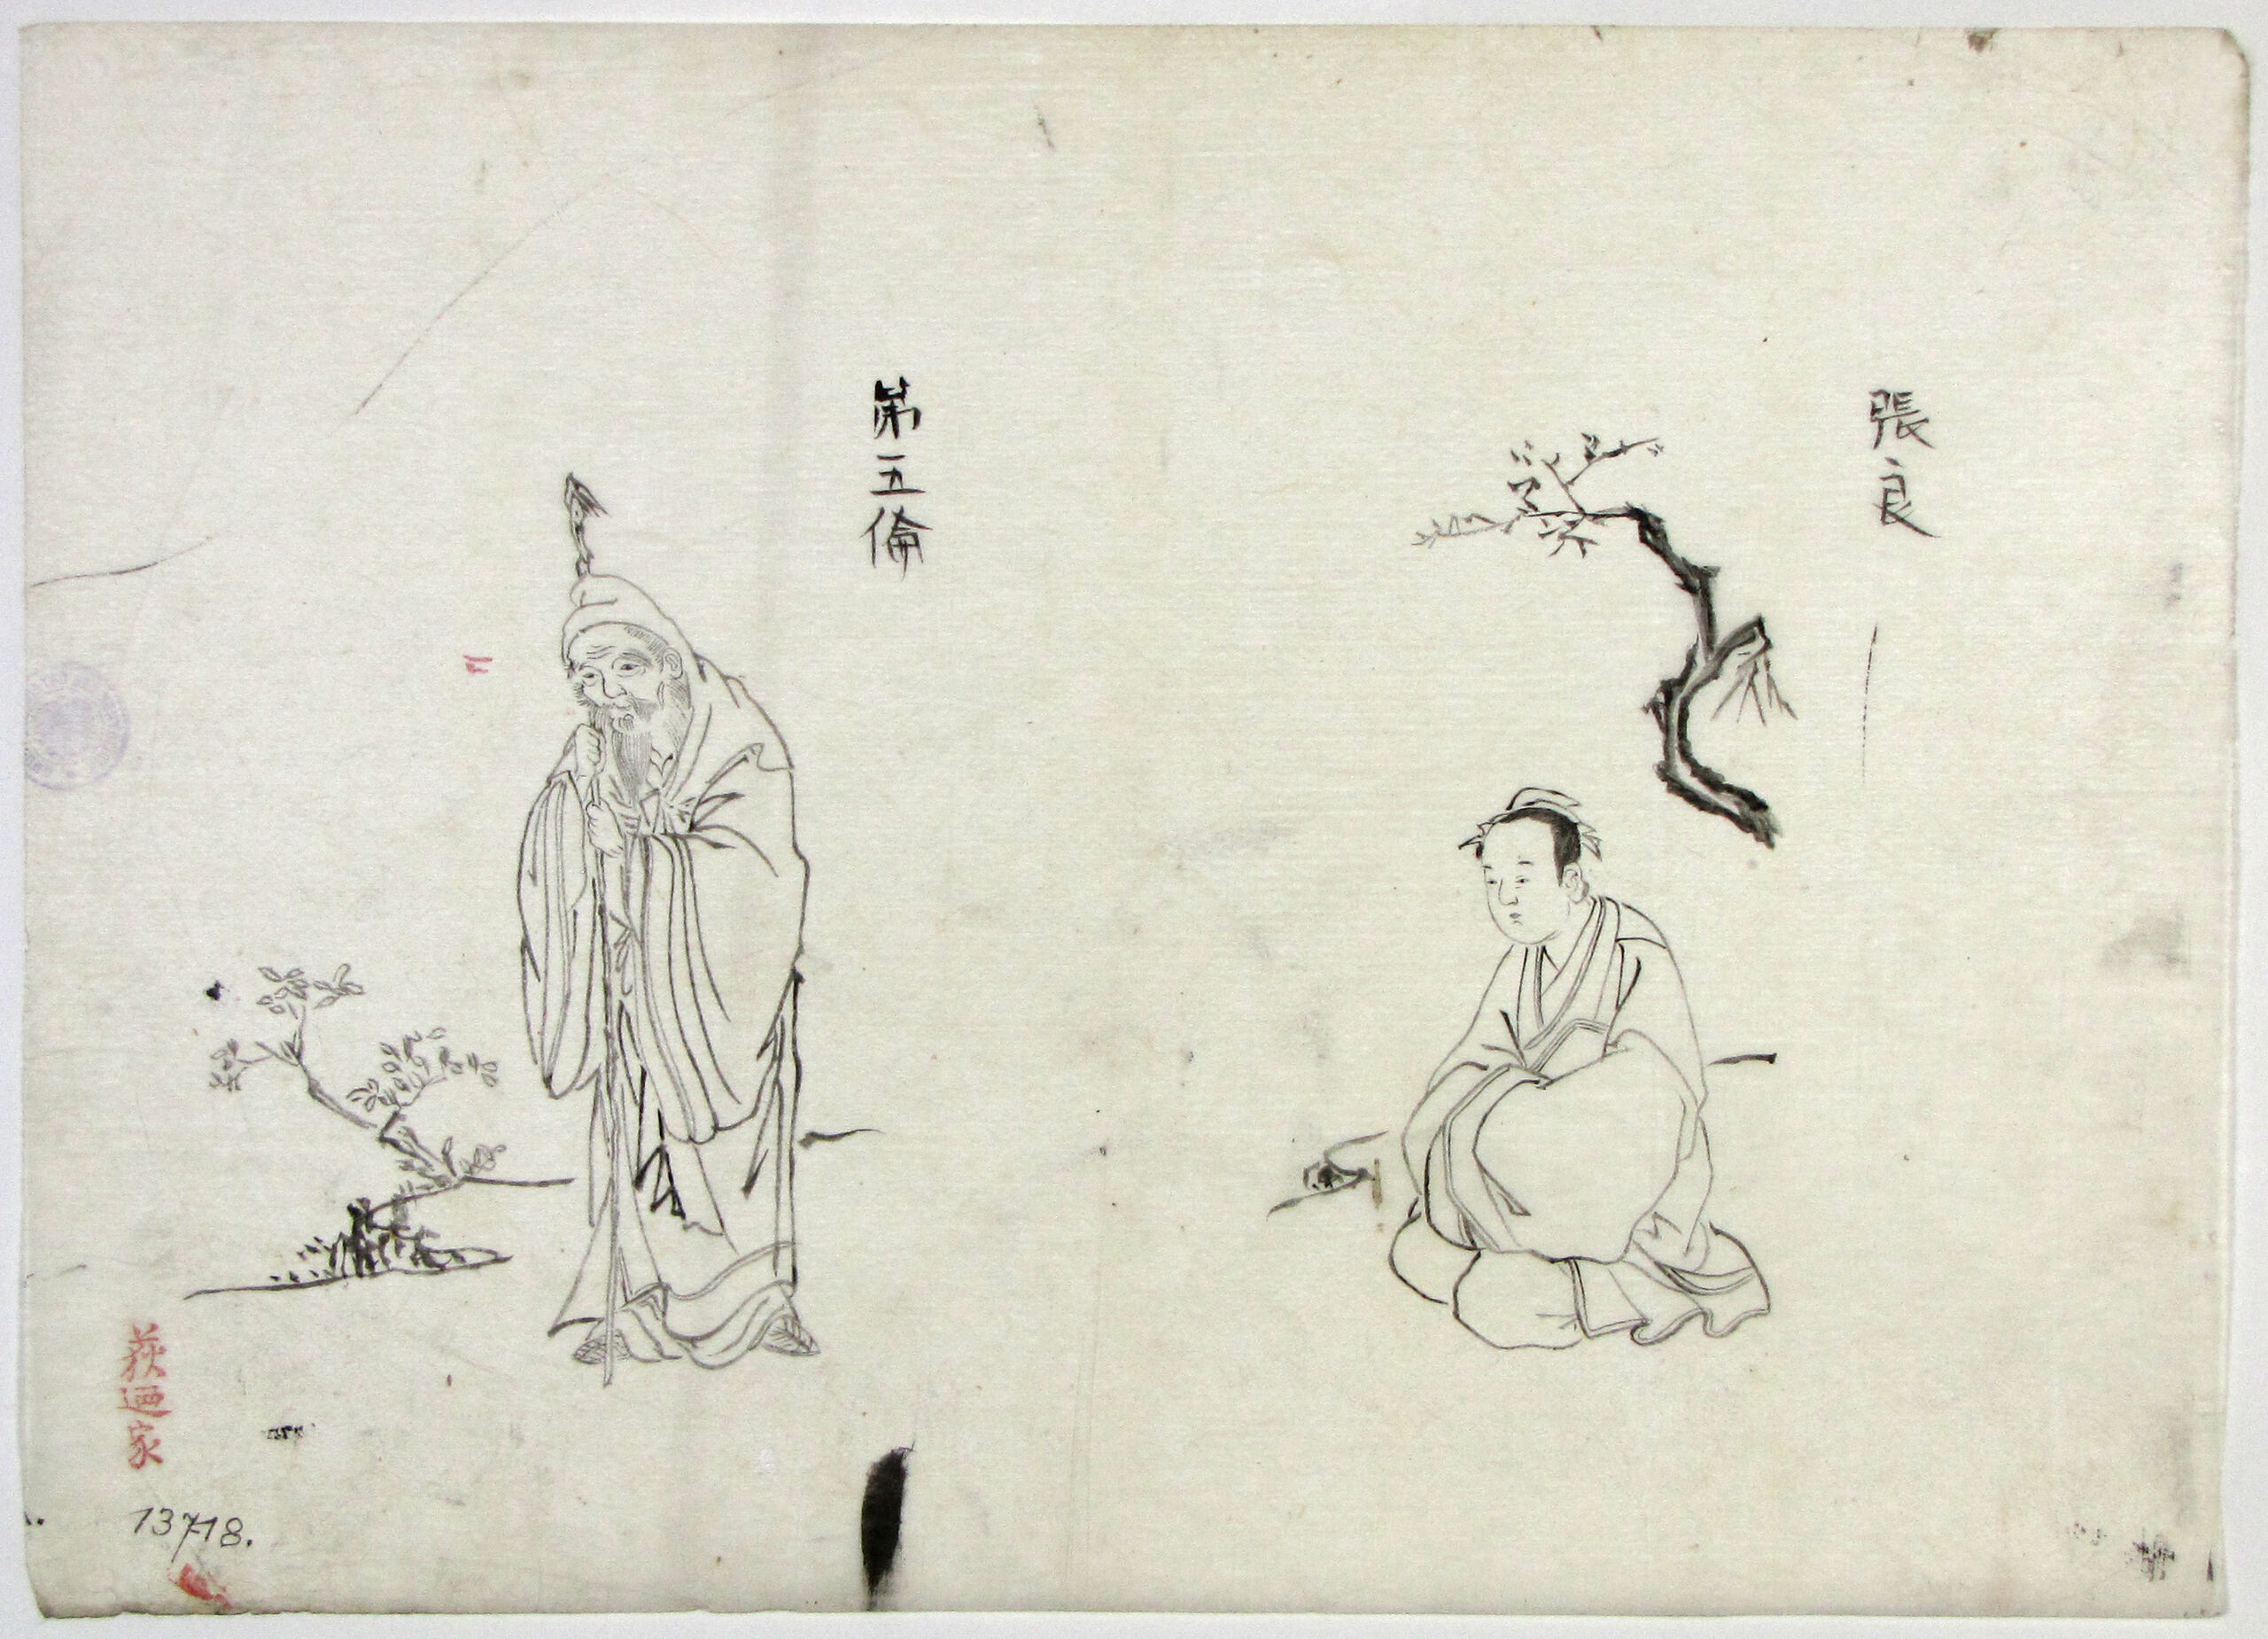 張良
第五倫
萩廼家
13718.